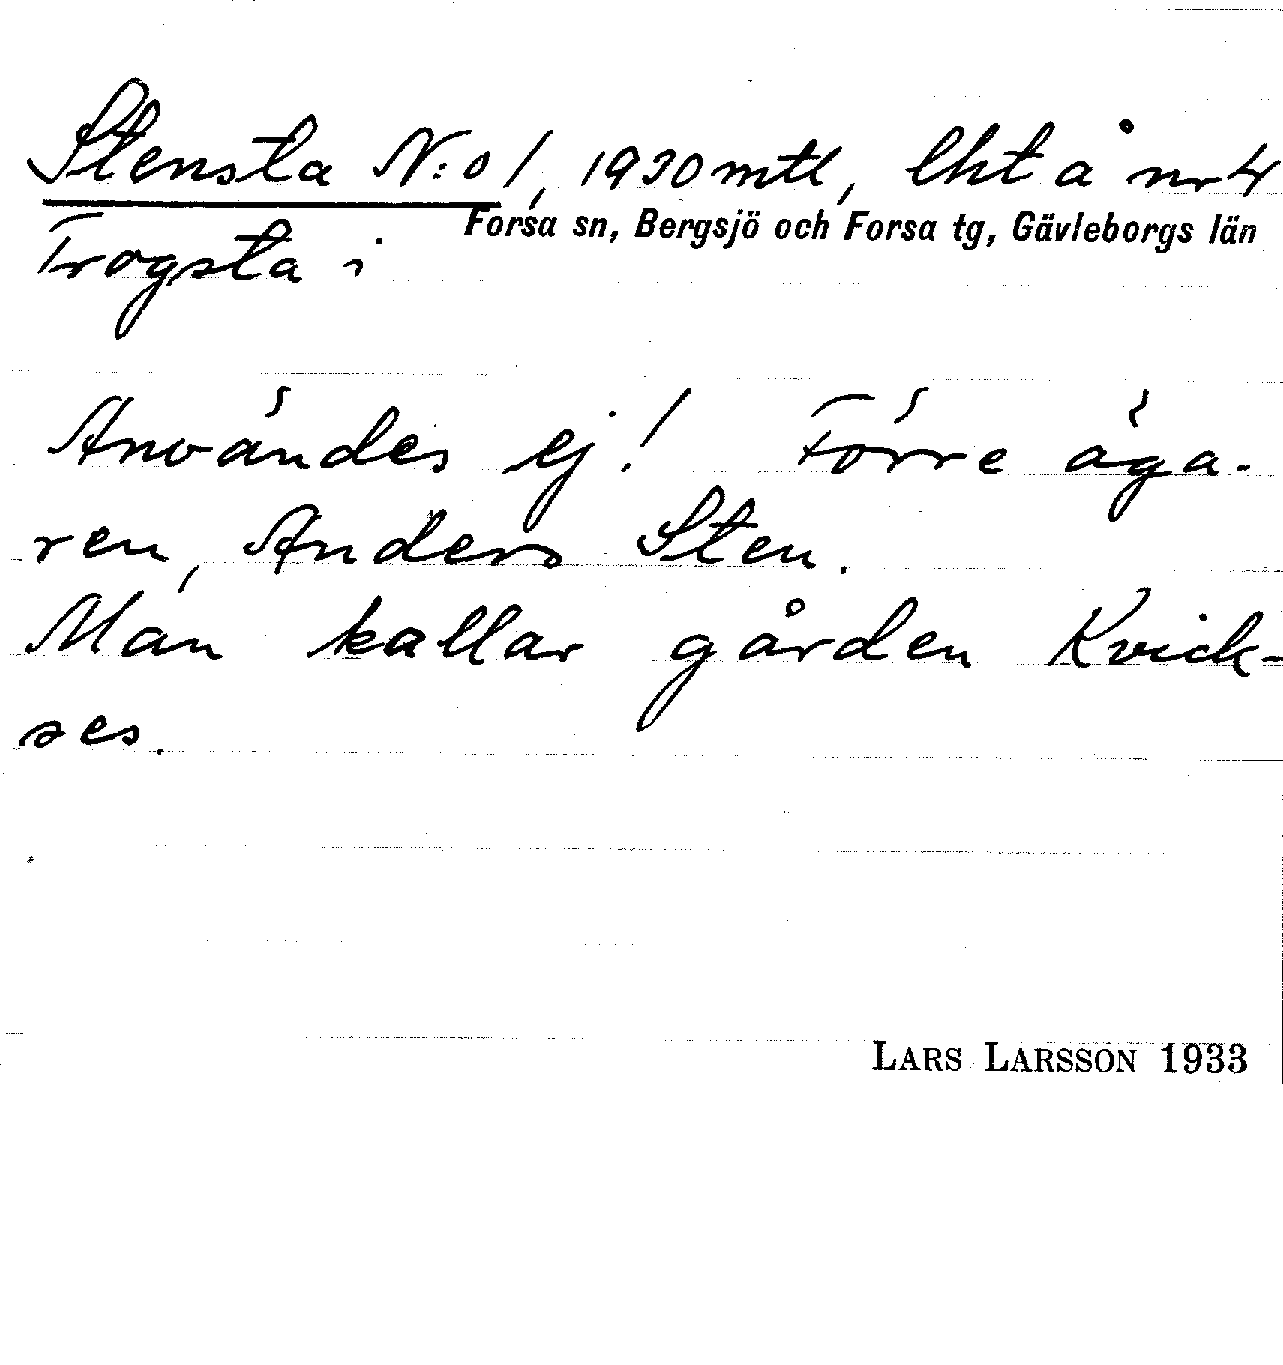 Stensta N:o 1, 1930 mtl, lht å nr 4
Forsa sn, Bergsjö och Forsa tg, Gävleborgs län
Trogsta i
Användes ej! Förre äga-
ren, Anders Sten.
Man kallar gården Kvick-
ses.
LARS LARSSON 1933